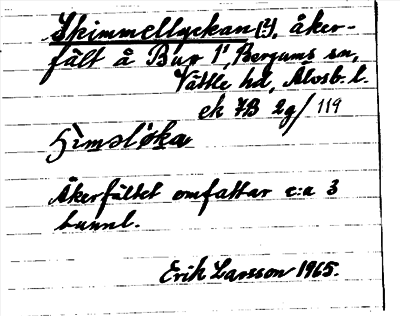 Skimmellyckan(1), åker-
fält å Bur 1¹, Bergums sn,
Vättle hd, Älvsb. l.
ek 7B 2g/119
Åkerfältet omfattar c:a 3
tunnl.
Erik Larsson 1965.